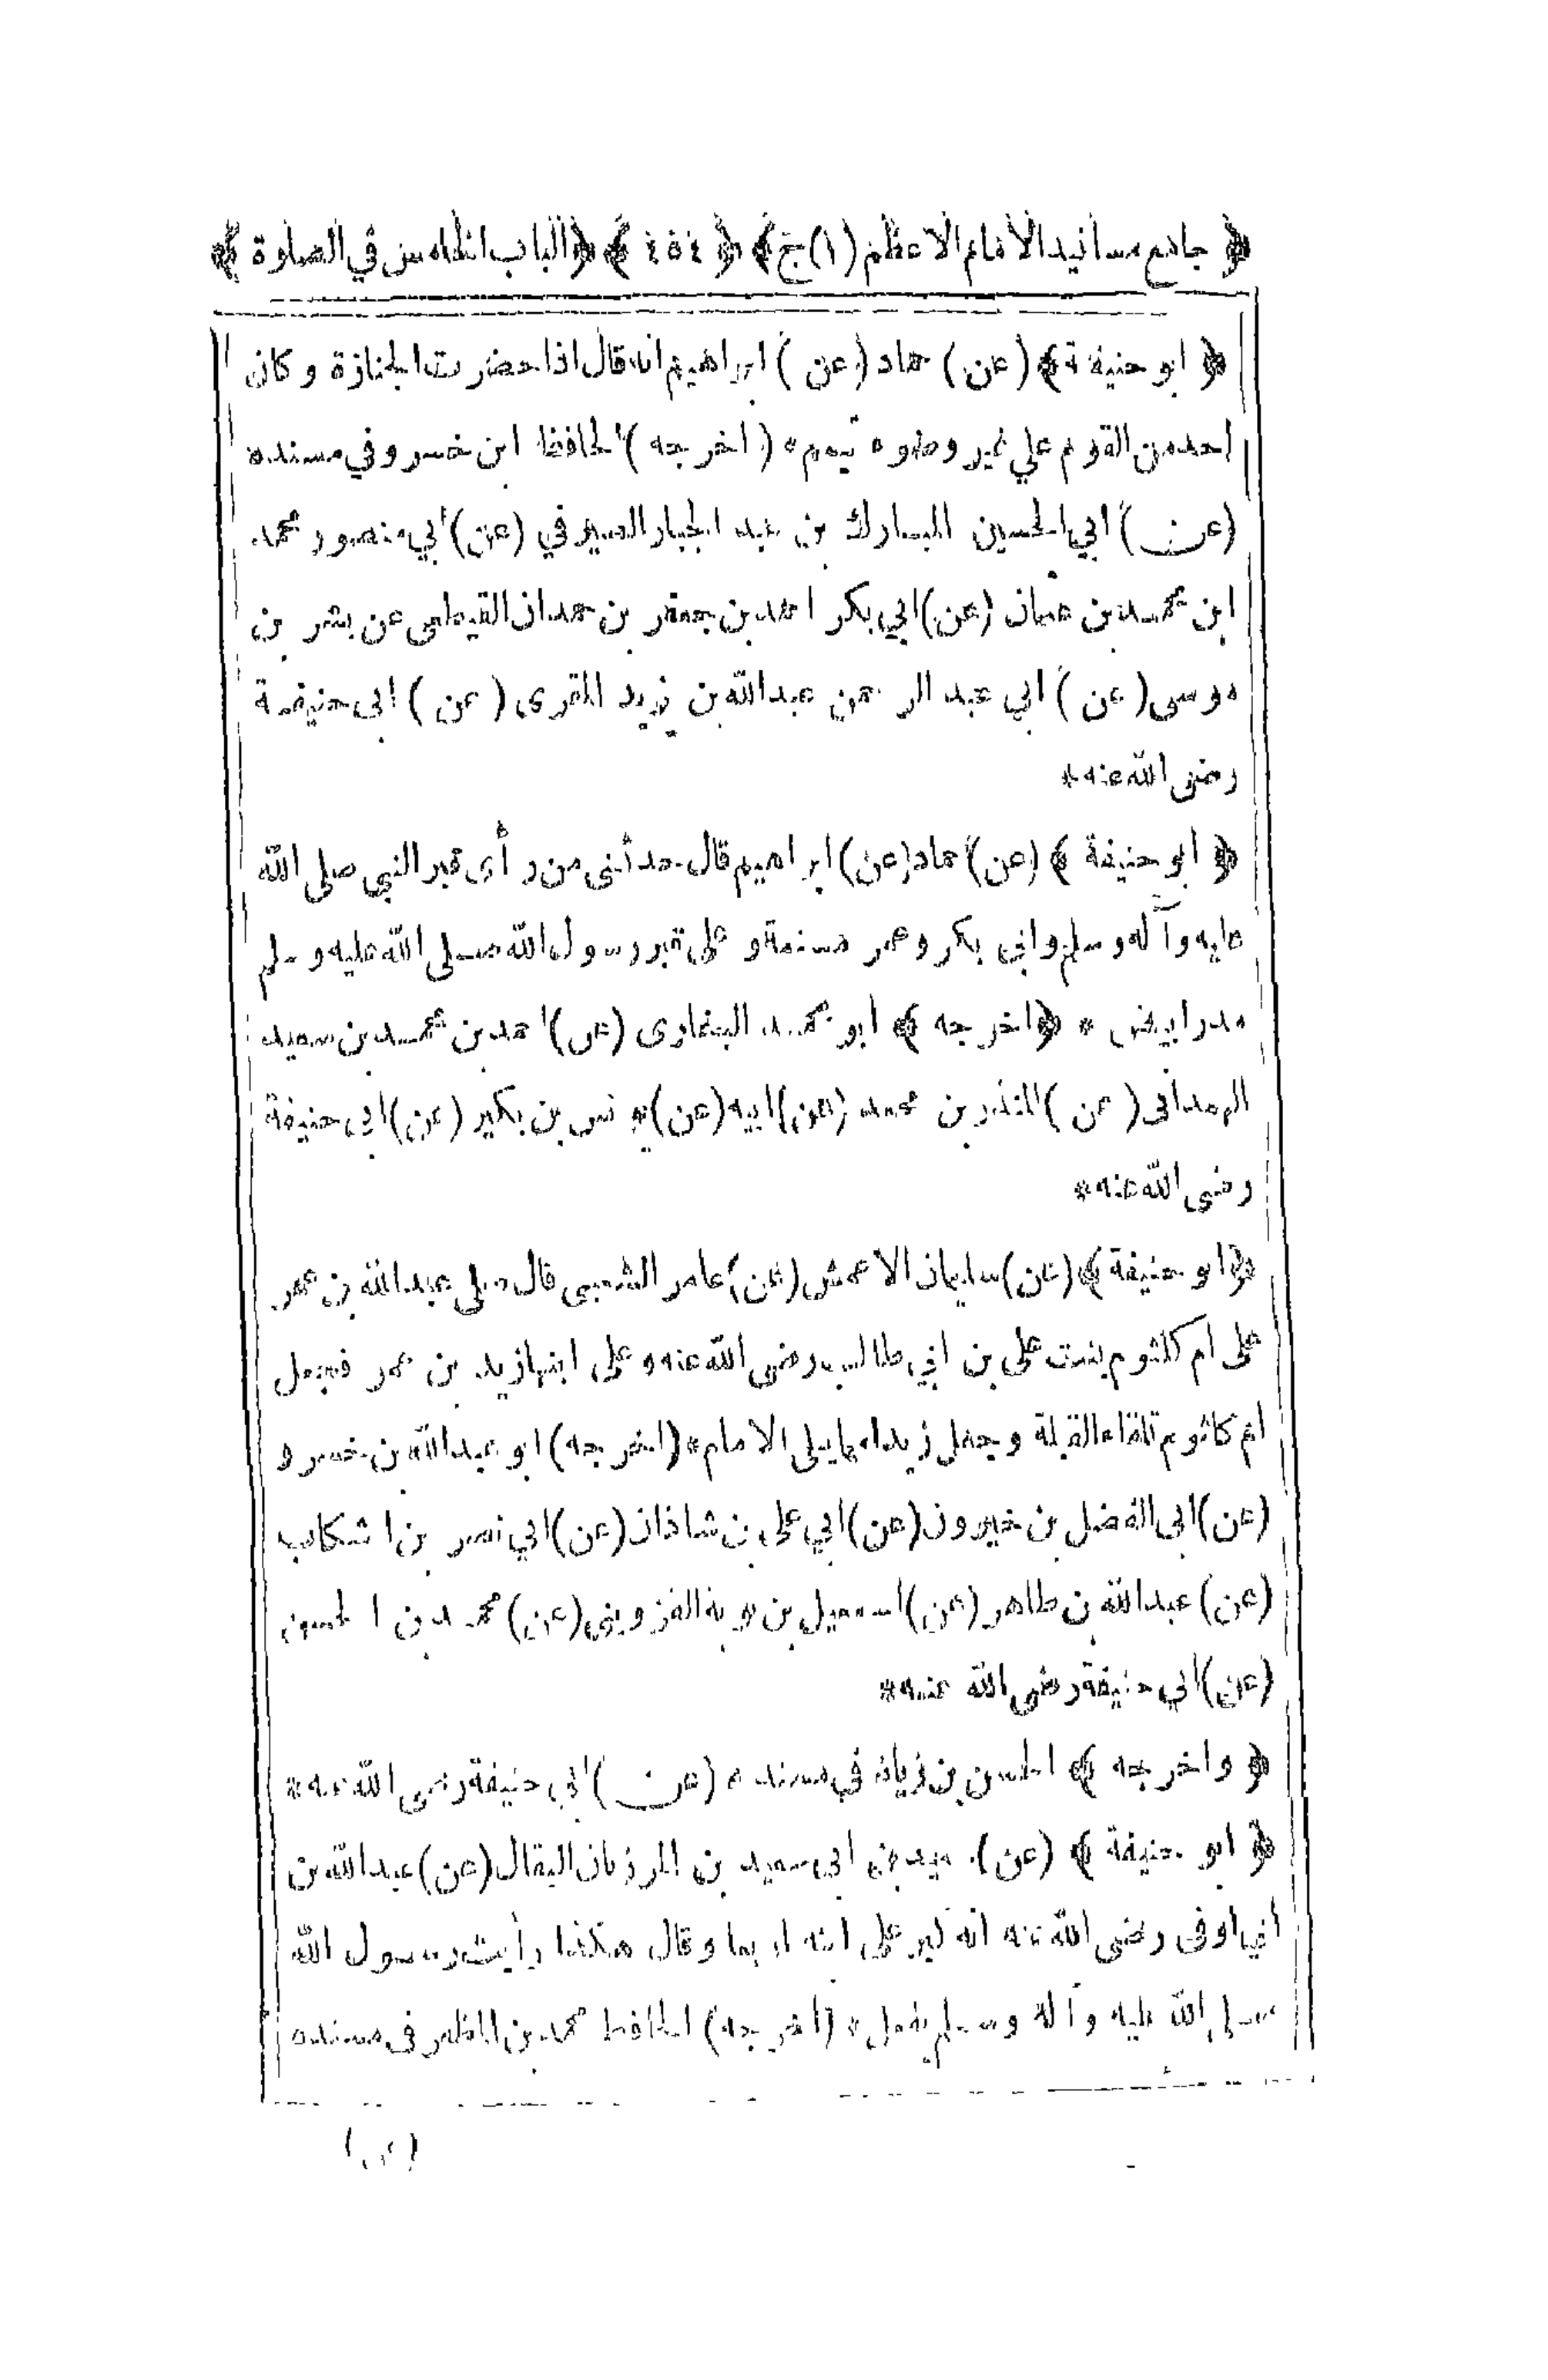 ﴿ جامع مسانيد الامام الاعظم (١) ج ﴾ ﴿ ٤٥٤ ﴾ ﴿ الباب الخامس في الصلوة ﴾
﴿ ابو حنيفة ﴾ (عن) حماد (عن) ابراهيم انه قال اذا حضرت الجنازة وكان
احد من القوم علي غير وضوء تيمم * (اخرجه) الحافظ ابن خسرو في مسنده
(عن) ابي الحسين المبارك بن عبد الجبار الصيرفي (عن) ابي منصور محمد
ابن محمد بن عثمان (عن) ابي بكر احمد بن جعفر بن حمدان القيطعى عن بشر بن
موسى (عن) ابي عبد الرحمن عبدالله بن يزيد المقرى (عن) ابى حنيفة
رضى الله عنه *
﴿ ابو حنيفة ﴾ (عن) حماد (عن) ابراهيم قال حدثنى من رأى قبر النبي صلى الله
عليه وآله وسلم وابى بكر وعمر مسنمة و على قبر رسول الله صلى الله عليه وسلم
مدر ابيض * ﴿ اخرجه ﴾ ابو محمد البخارى (عن) احمد بن محمد بن سعيد
الهمدانى (عن) المنذر بن محمد (عن) ابيه (عن) يونس بن بكير (عن) ابى حنيفة
رضى الله عنه *
﴿ ابو حنيفة ﴾ (عن) سليمان الاعمش (عن) عامر الشعبى قال صلى عبدالله بن عمر
على ام كلثوم بنت على بن ابي طالب رضى الله عنه و على ابنها زيد بن عمر فجعل
ام كلثوم تلقاء القبلة وجعل زيدا مما يلى الامام * (اخرجه) ابو عبدالله بن خسرو
(عن) ابى الفضل بن خيرون (عن) ابي على بن شاذان (عن) ابي نصر بن اشكاب
(عن) عبدالله بن طاهر (عن) اسمعيل بن توبة القزوينى (عن) محمد بن الحسن
(عن) ابي حنيفة رضى الله عنه *
﴿ واخرجه ﴾ الحسن بن زياد في مسنده (عن) ابي حنيفة رضى الله عنه *
﴿ ابو حنيفة ﴾ (عن) سعيد بن ابى سعيد بن المرزبان البقال (عن) عبدالله بن
أبي اوفى رضى الله عنه انه كبر على ابنه اربعا وقال هكذا رأيت رسول الله
صلى الله عليه وآله وسلم يفعل * (اخرجه) الحافظ محمد بن المظفر فى مسنده
(عن)